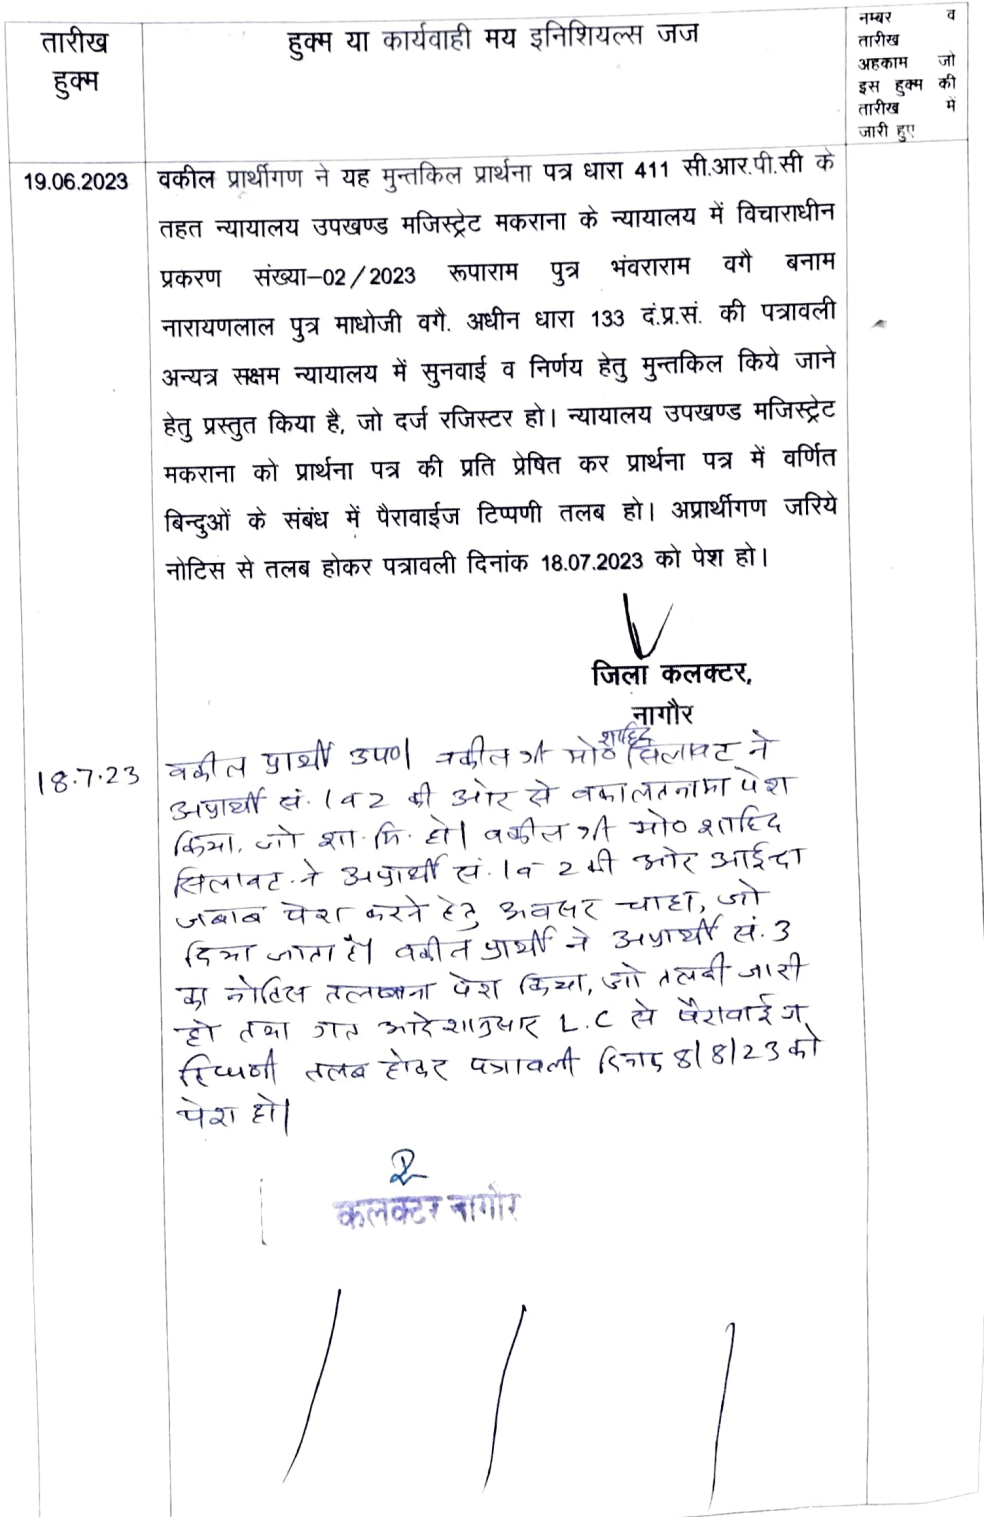 तारीख
हुक्म
हुक्म या कार्यवाही मय इनिशियल्स जज
नम्बर व
तारीख
अहकाम जो
इस हुक्म की
तारीख में
जारी हुए
19.06.2023
वकील प्रार्थीगण ने यह मुन्तकिल प्रार्थना पत्र धारा 411 सी.आर.पी.सी के
तहत न्यायालय उपखण्ड मजिस्ट्रेट मकराना के न्यायालय में विचाराधीन
प्रकरण संख्या–02/2023 रूपाराम पुत्र भंवराराम वगै बनाम
नारायणलाल पुत्र माधोजी वगै. अधीन धारा 133 दं.प्र.सं. की पत्रावली
अन्यत्र सक्षम न्यायालय में सुनवाई व निर्णय हेतु मुन्तकिल किये जाने
हेतु प्रस्तुत किया है, जो दर्ज रजिस्टर हो। न्यायालय उपखण्ड मजिस्ट्रेट
मकराना को प्रार्थना पत्र की प्रति प्रेषित कर प्रार्थना पत्र में वर्णित
बिन्दुओं के संबंध में पैरावाईज टिप्पणी तलब हो। अप्रार्थीगण जरिये
नोटिस से तलब होकर पत्रावली दिनांक 18.07.2023 को पेश हो।
जिला कलक्टर,
नागौर
18.7.23
वकील प्रार्थी उप0। वकील श्री मो0 शाहिद सिलावट ने
अप्रार्थी सं. 1 व 2 की ओर से वकालतनामा पेश
किया, जो शा. मि. हो। वकील श्री मो0 शाहिद
सिलावट ने अप्रार्थी सं. 1 व 2 की ओर आईन्दा
जबाब पेश करने हेतु अवसर चाहा, जो
दिया जाता है। वकील प्रार्थी ने अप्रार्थी सं. 3
का नोटिस तलबाना पेश किया, जो तलबी जारी
हो तथा गत आदेशानुसार L.C से पैरावाईज
टिप्पणी तलब होकर पत्रावली दिनांक 8/8/23 को
पेश हो।
कलक्टर नागौर